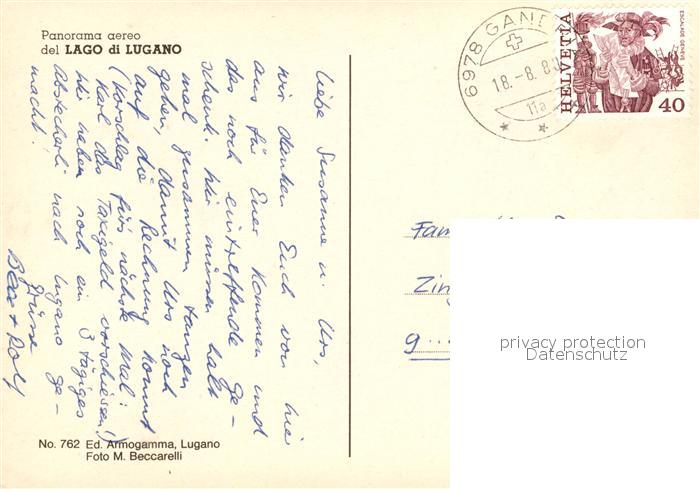 Panorama aereo
del LAGO di LUGANO
Liebe Susanne u. Urs,
wir danken Euch von hier
aus für Euer Kommen und
das noch eintreffende Ge-
schenk. Wir müssen halt
mal zusammen tanzen
gehen, damit Urs noch
auf die Rechnung kommt
(Vorschlag fürs nächste Mal:
Karl das Taxigeld vorschiessen!)
Wir haben noch ein 3 tägiges
Abstecherli nach Lugano ge-
macht!
Grüsse
+ Rolf
No. 762 Ed. Armogamma, Lugano
Foto M. Beccarelli
6978 GAND
18.-8.8
11a
HELVETIA
ESCALADE GENÈVE
40
Fam
Zin
9
privacy protection
Datenschutz